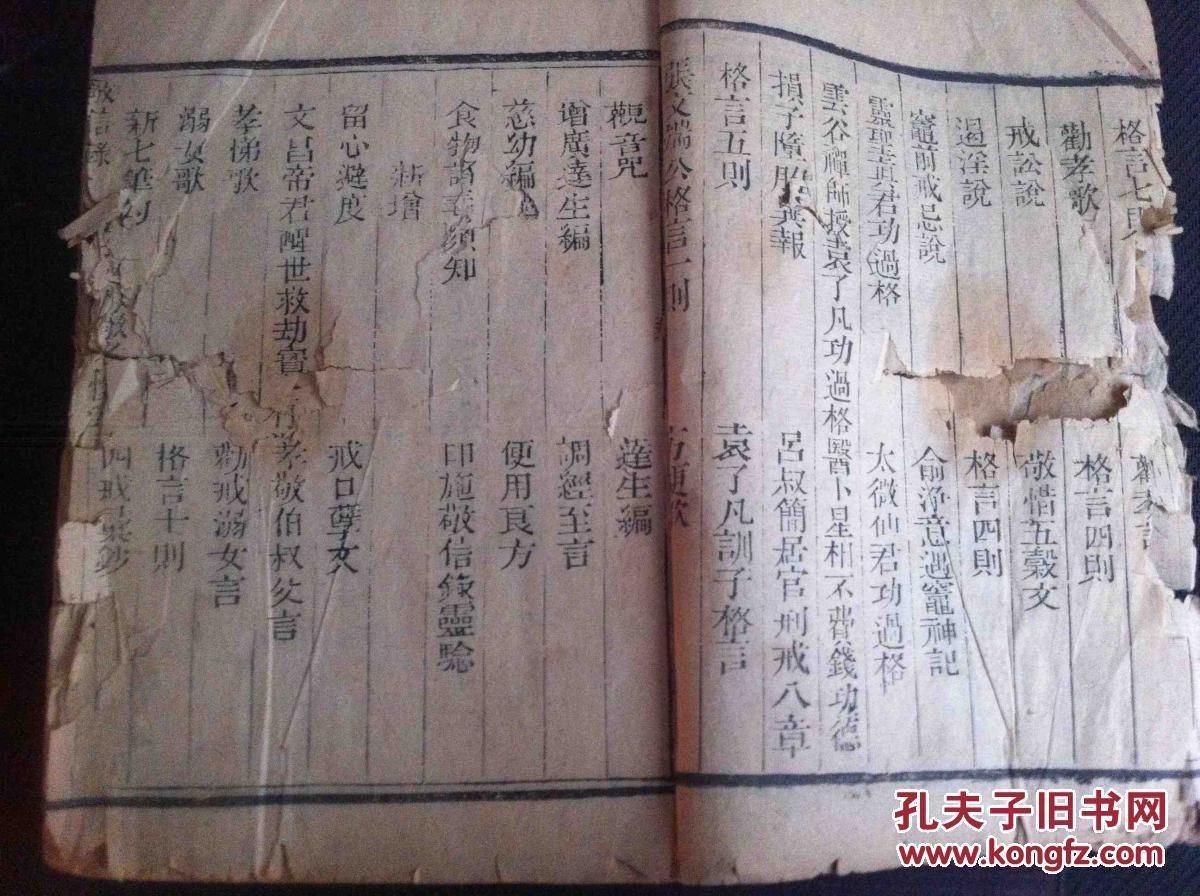 格言七
勸孝歌 格言四則
戒訟說 敬惜五穀文
遏淫說 格言四則
竈前戒忌說 俞淨意遇竈神記
靈聖真君功過格 太微仙君功過格
雲谷禪師授袁了凡功過格 醫卜星相不費錢功德
損子墮胎異報 呂叔簡居官刑戒八章
格言五則 袁了凡訓子格言
張文端公格言一則 方便歌
觀音咒 達生編
增廣達生編 調經至言
慈幼編 便用良方
食物諸毒須知 印施敬信錄靈驗
新增
留心避度 戒口孽文
文昌帝君醒世救劫寶 孝敬伯叔父言
孝悌歌 勸戒溺女言
溺女歌 格言十則
新七筆勾 四戒
敬信錄
孔夫子旧书网
www.kongfz.com